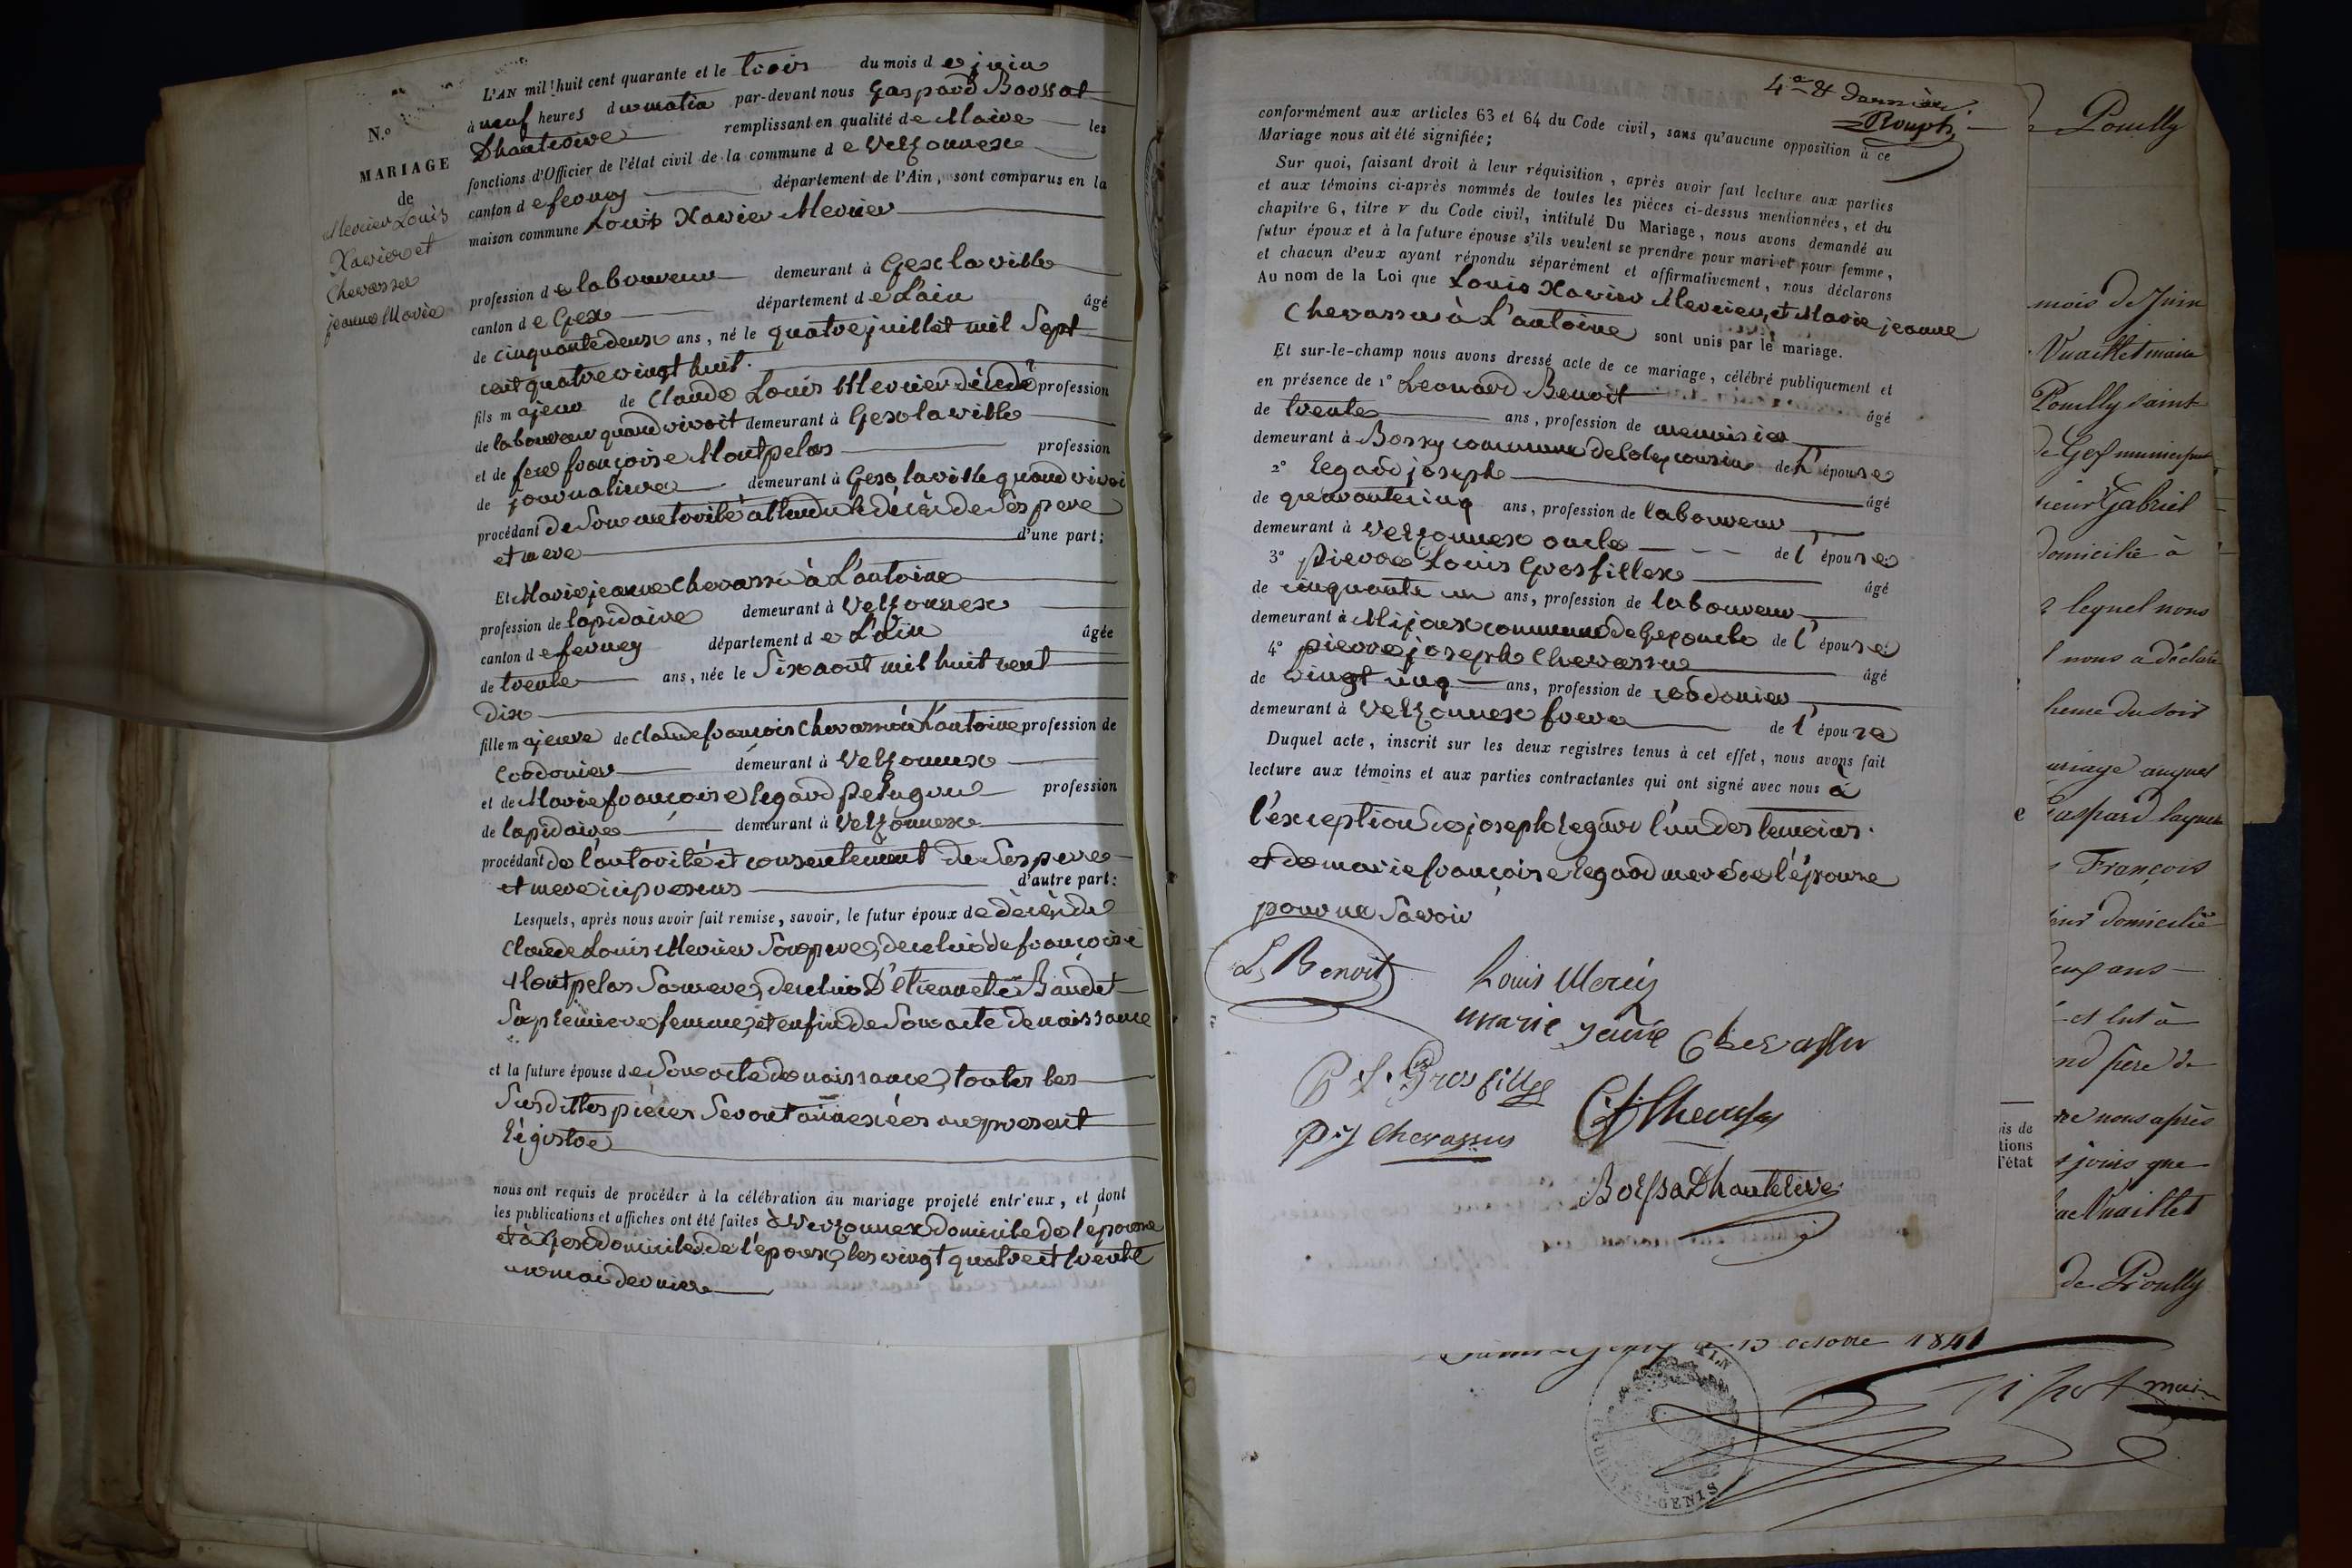 N.º
MARIAGE
de
Mercier Louis
Xavier et
Chevassu
jeanne Marie
L'AN mil huit cent quarante et le trois du mois de juin
à neuf heures du matin par-devant nous Gaspard Boissat
Dhauterive remplissant en qualité de Maire les
fonctions d'Officier de l'état civil de la commune de Versonnex
canton de ferney département de l'Ain, sont comparus en la
maison commune Louis Xavier Mercier
profession de laboureur demeurant à Gex la ville
canton de Gex département de L'ain âgé
de cinquante deux ans, né le quatre juillet mil Sept
cent quatre vingt huit.
fils majeur de Claude Louis Mercier décédé profession
de laboureur quand vivoit demeurant à Gex la ville
et de feue françoise Montpelas profession
de journaliere demeurant à Gex la ville quand vivoi
procédant de Son autorité attendu le décès de Ses pere
et mere d'une part;
Et Marie jeanne Chevassu à L'antoine
profession de lapidaire demeurant à Versonnex
canton de ferney département de L'Ain âgée
de trente ans, née le Six aout mil huit cent
dix
fille majeure de Claude françois Chevassu à L'antoine profession de
Cordonier demeurant à Versonnex
et de Marie françoise Legard pelagrue profession
de lapidaire demeurant à Versonnex
procédant de l'autorité et consentement de Ses pere
et mere ici presens d'autre part:
Lesquels, après nous avoir fait remise, savoir, le futur époux de décès de
Claude Louis Mercier Son pere, de celui de françoise
Montpelas Sa mere, de celui D'Etiennette Baudet
Sa premiere femme, et enfin de Son acte de naissance
et la future épouse de Son acte de naissance, toutes les
Susdittes pièces Seront annexées au present
Régistre
nous ont requis de procéder à la célébration du mariage projeté entr'eux, et dont
les publications et affiches ont été faites à Versonnex domicile de l'épouse
et à Gex domicile de l'époux, les vingt quatre et trente
un mai dernier
4e & dernière
conformément aux articles 63 et 64 du Code civil, sans qu'aucune opposition à ce
Mariage nous ait été signifiée;
Sur quoi, faisant droit à leur réquisition, après avoir fait lecture aux parties
et aux témoins ci-après nommés de toutes les pièces ci-dessus mentionnées, et du
chapitre 6, titre v du Code civil, intitulé Du Mariage, nous avons demandé au
futur époux et à la future épouse s'ils veulent se prendre pour mari et pour femme,
et chacun d'eux ayant répondu séparément et affirmativement, nous déclarons
Au nom de la Loi que Louis Xavier Mercier, et Marie jeanne
Chevassu à L'antoine sont unis par le mariage.
Et sur-le-champ nous avons dressé acte de ce mariage, célébré publiquement et
en présence de 1° Leonard Benoit âgé
de trente ans, profession de menuisier
demeurant à Bossy commune de Colex cousin de L'épouse
2° Legard joseph âgé
de quarante cinq ans, profession de laboureur
demeurant à Versonnex oncle de l'épouse
3° Pierre Louis Grosfillex âgé
de cinquante un ans, profession de laboureur
demeurant à Mijoux commune de Gex oncle de l'épouse
4° pierre joseph Chevassu âgé
de vingt cinq ans, profession de cordonier
demeurant à Versonnex frere de l'épouse
Duquel acte, inscrit sur les deux registres tenus à cet effet, nous avons fait
lecture aux témoins et aux parties contractantes qui ont signé avec nous à
l'exception de joseph Legard l'un des temoins
et de marie françoise Legard mere de l'épouse
pour ne Savoir
L Benoit
Louis Mercié
marie jeanne Chevassu
P L Grosfillex
C f Chevassu
P j Chevassus
Boissa Dhauterive
13 octobre 1841
maire
AIN
GENIS
Pouilly
mois de Juin
Vuaillet maire
Pouilly saint
de Gex
sieur Gabriel
domicilié à
lequel nous
nous a déclaré
heure du soir
mariage auquel
e
Gaspard
François
domicilié
deux ans
et lut à
nd pere de
nous après
is de
tions
l'état
joins que
Vuaillet
de Pouilly